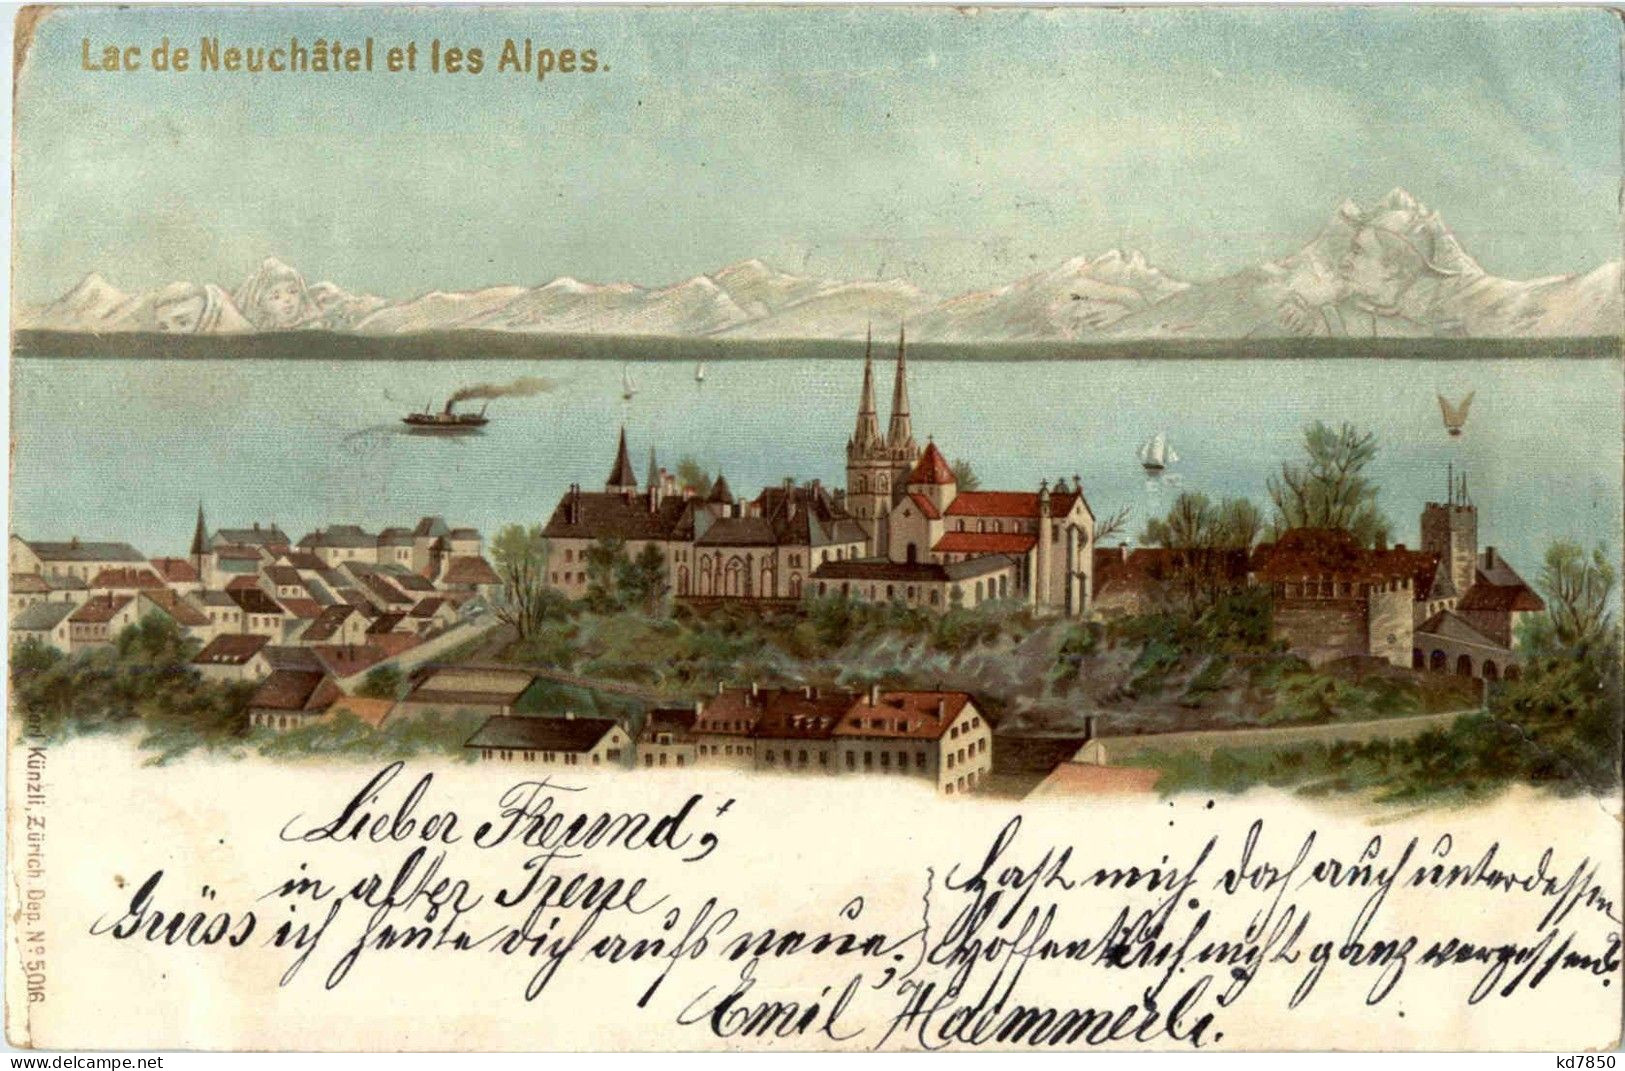 Lac de Neuchâtel et les Alpes.
Carl Künzli, Zürich. Dep. Nº 5016
Lieber Freund,
in alter Treue
Grüss ich heute dich aufs neue;
Hast mich doch auch unterdessen
Hoffentlich nicht ganz vergessen?
Emil Haemmerli.
kd7850